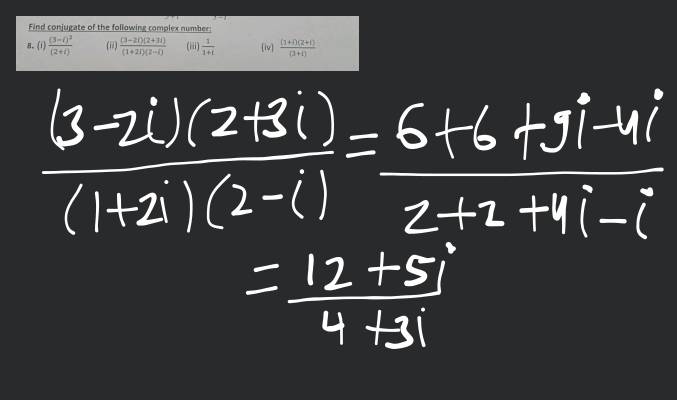 Find conjugate of the following complex number:
8. (i) (3−i)²/(2+i) (ii) (3−2i)(2+3i)/(1+2i)(2−i) (iii) 1/1+i (iv) (1+i)(2+i)/(3+i)
(3-2i)(2+3i)/(1+2i)(2-i) = 6+6+9i-4i/2+2+4i-i
= 12+5i/4+3i